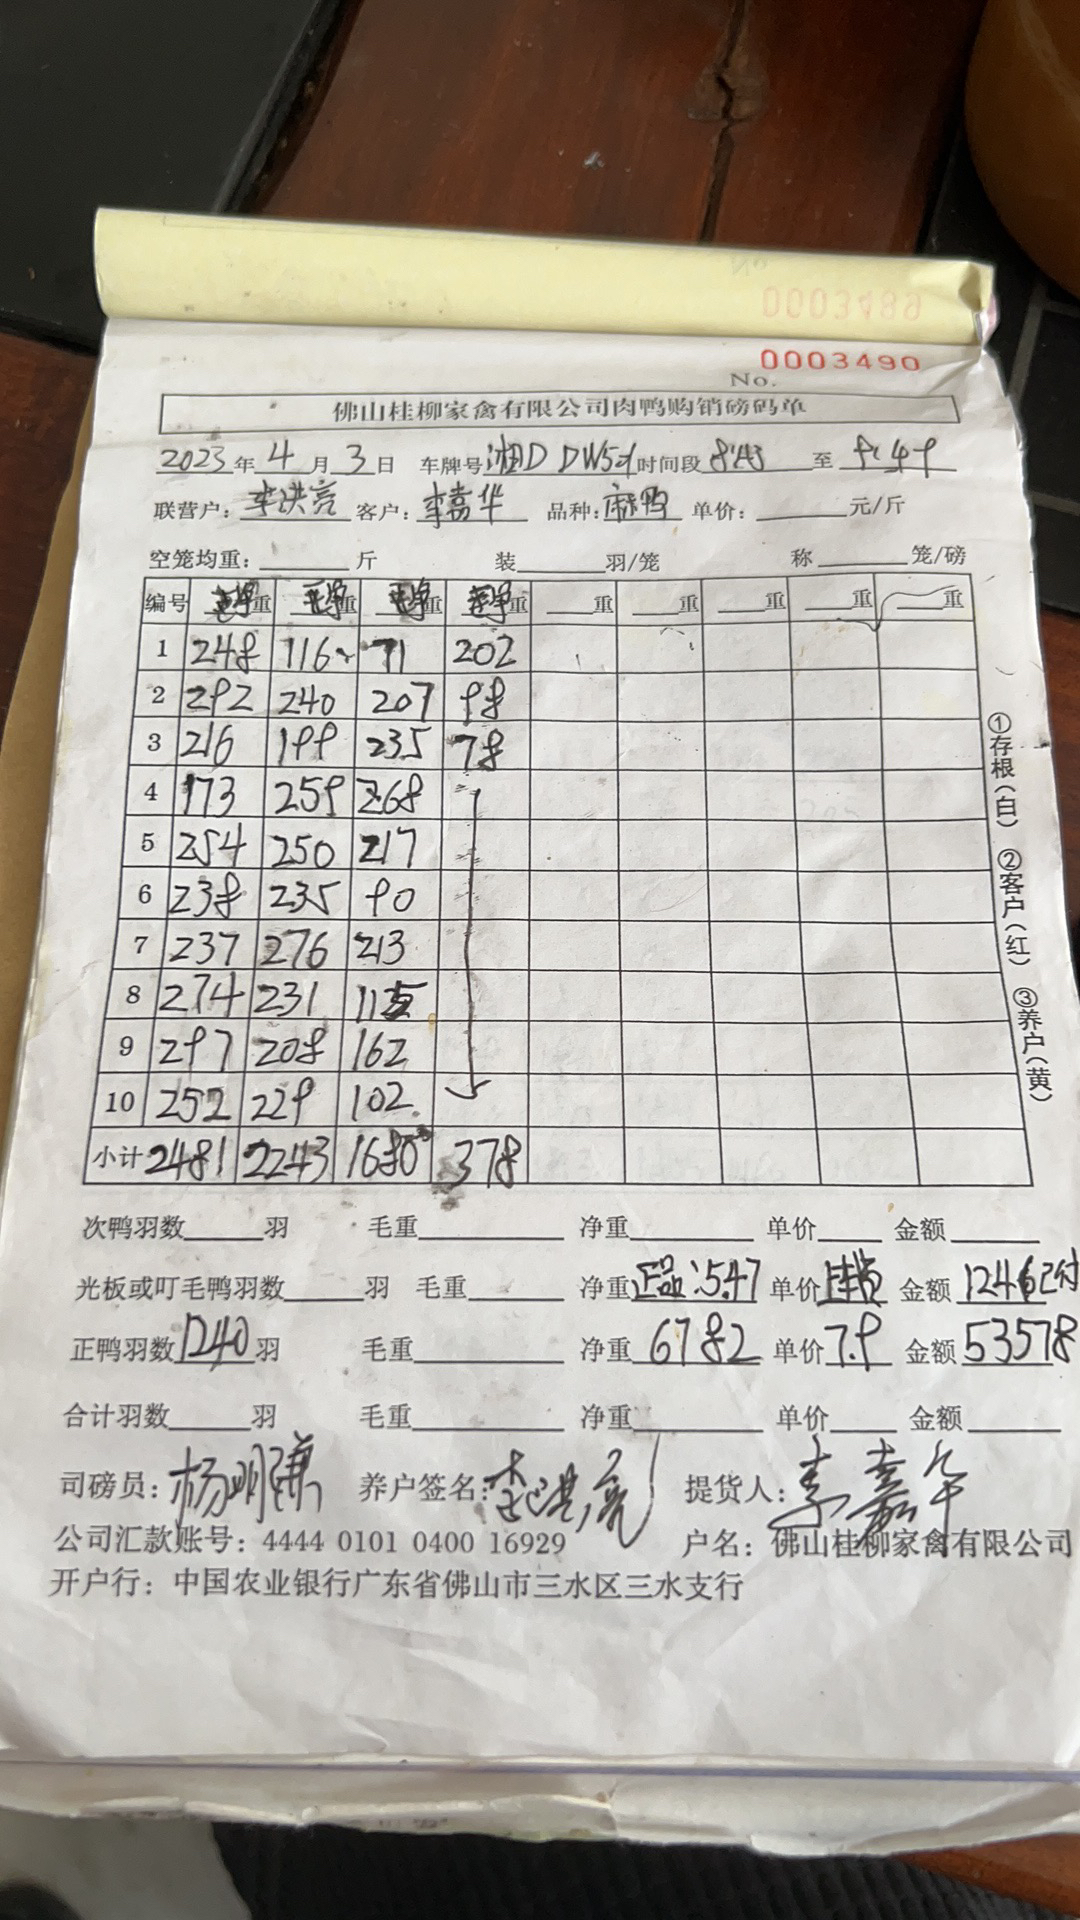 0003489
0003490
No.
佛山桂柳家禽有限公司肉鸭购销磅码单
2023年4月3日 车牌号湘D 时间段8:43至9:49
联营户:李洪亮 客户:李嘉华 品种:麻鸭 单价:____元/斤
空笼均重:____斤 装____羽/笼 称____笼/磅
编号 净重 净重 净重 净重 __重 __重 __重 __重 __重
1 248 116 71 202
2 292 240 207 98
3 216 199 235 78
4 173 259 268
5 254 250 217
6 238 235 90
7 237 276 213
8 274 231 115
9 297 208 162
10 252 229 102
小计 2481 2243 1680 378
①存根(白) ②客户(红) ③养户(黄)
次鸭羽数____羽 毛重____ 净重____ 单价____ 金额____
光板或叮毛鸭羽数____羽 毛重____ 净重正品:5.47 单价 金额1246已付
正鸭羽数1240羽 毛重____ 净重6782 单价7.9 金额53578
合计羽数____羽 毛重____ 净重____ 单价____ 金额____
司磅员:杨明谦 养户签名:李洪亮 提货人:李嘉华
公司汇款账号:4444 0101 0400 16929 户名:佛山桂柳家禽有限公司
开户行:中国农业银行广东省佛山市三水区三水支行